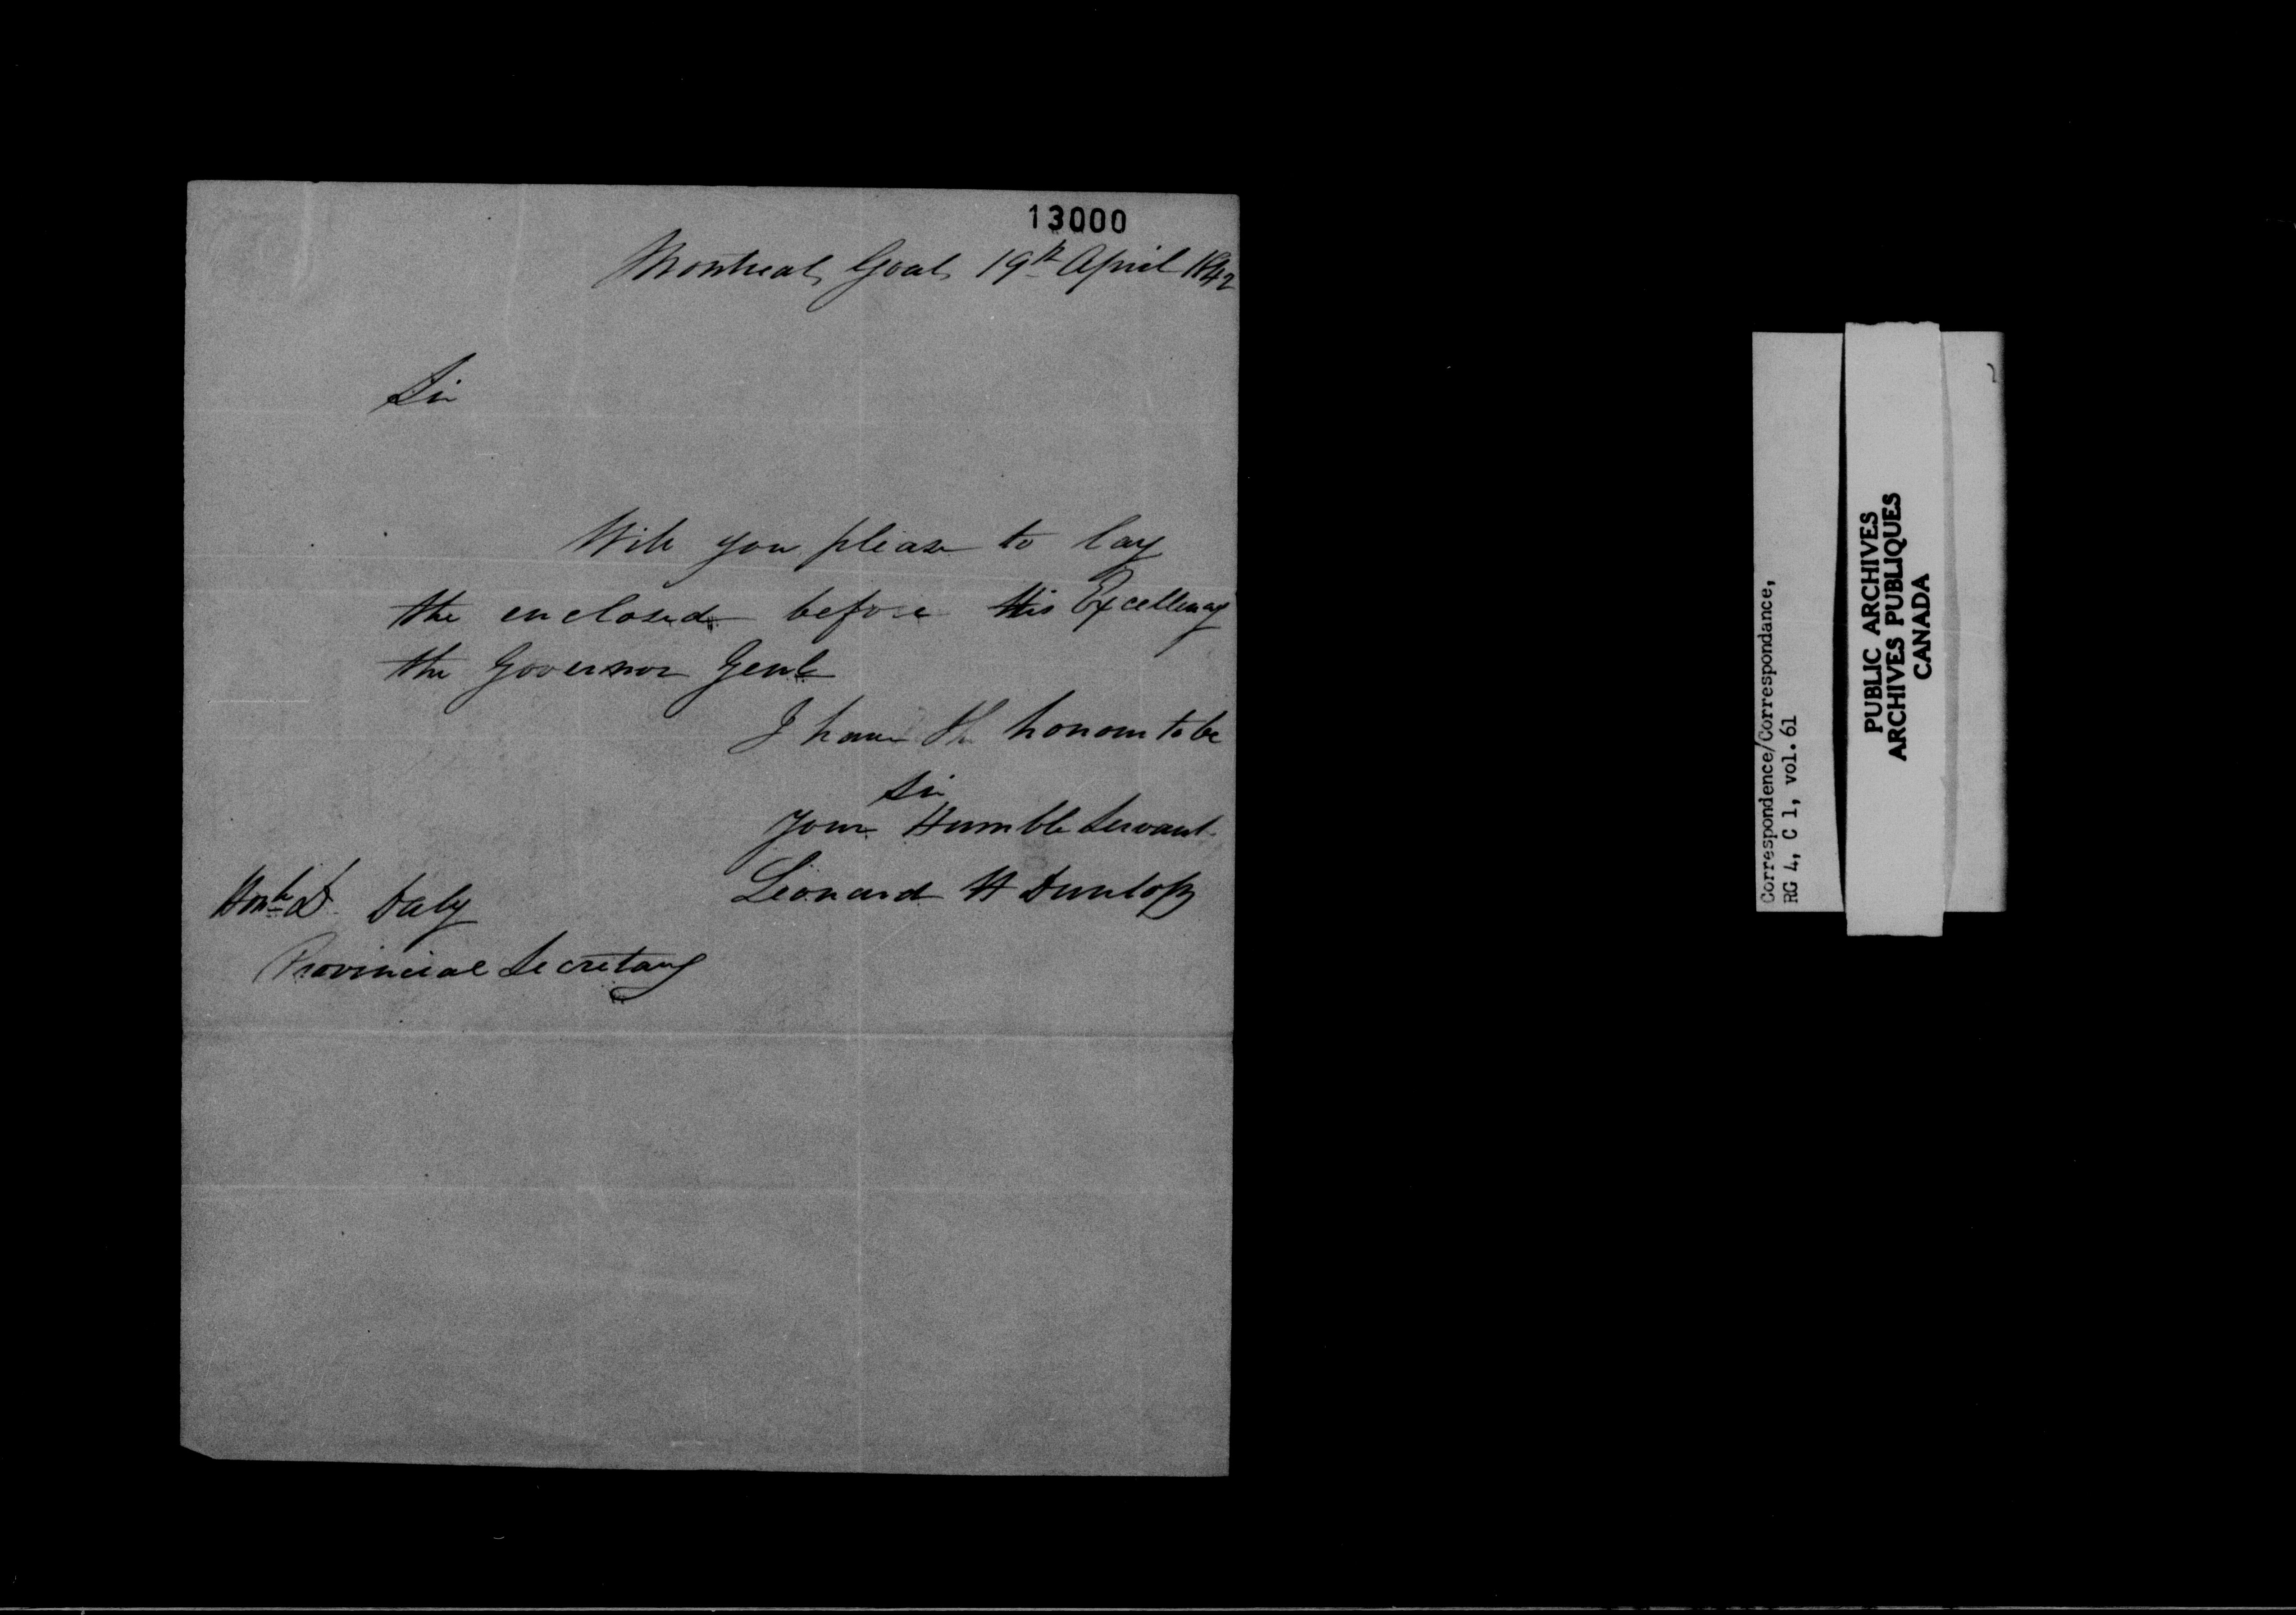 13000
Montreal Goal 19th April 1842
Sir
Will you please to lay
the enclosed before His Excellency
the Governor Genl
I have the honour to be
Sir
Your Humble Servant
Leonard H Dunlop
Honble D Daly
Provincial Secretary
Correspondence/Correspondance,
RG 4, C 1, vol. 61
PUBLIC ARCHIVES
ARCHIVES PUBLIQUES
CANADA